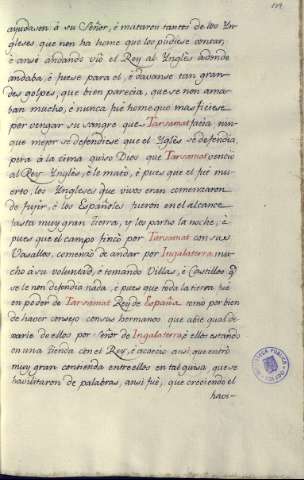 ayudasen à su Señor, é mataron tantos de los Yn-
gleses, que non ha home que los pudiese contar,
é ansi andando vió el Rey al Ynglès adonde
andaba; é fuese para el, é davanse tan gran-
des golpes, que bien parecia, que se non ama-
ban mucho, é nunca fué home que mas ficiese
por vengar su sangre que Tarsamat facia nin-
que mejor se defendiese que el Yglès sé defendia,
pero à la cima quiso Dios que Tarsamat venció
al Rey Ynglès, é le mató, é pues que el fué mu-
erto, los Yngleses que vivos eran comenzaron
de fuyir, é los Españoles fueron en el alcance
fasta muy gran tierra, y los partio la noche; é
pues que el campo fincò por Tarsamat con sus
Vasallos, comenzò de andar por Yngalaterra mu-
cho à su voluntad, é tomando Villas, é Castillos q.
se le non defendia nada, é pues que toda la tierra fué
en poder de Tarsamat Rey de España tomo por bien
de hacer consejo con sus hermanos que
de ellos por Señor de Ingalaterra, é ellos estando
en una tienda con el Rey, é acaeciò ansi, que entrò
muy gran contienda entre ellos en tal guisa, que se
de palabras, ansi fué, que creciendo el
haci-